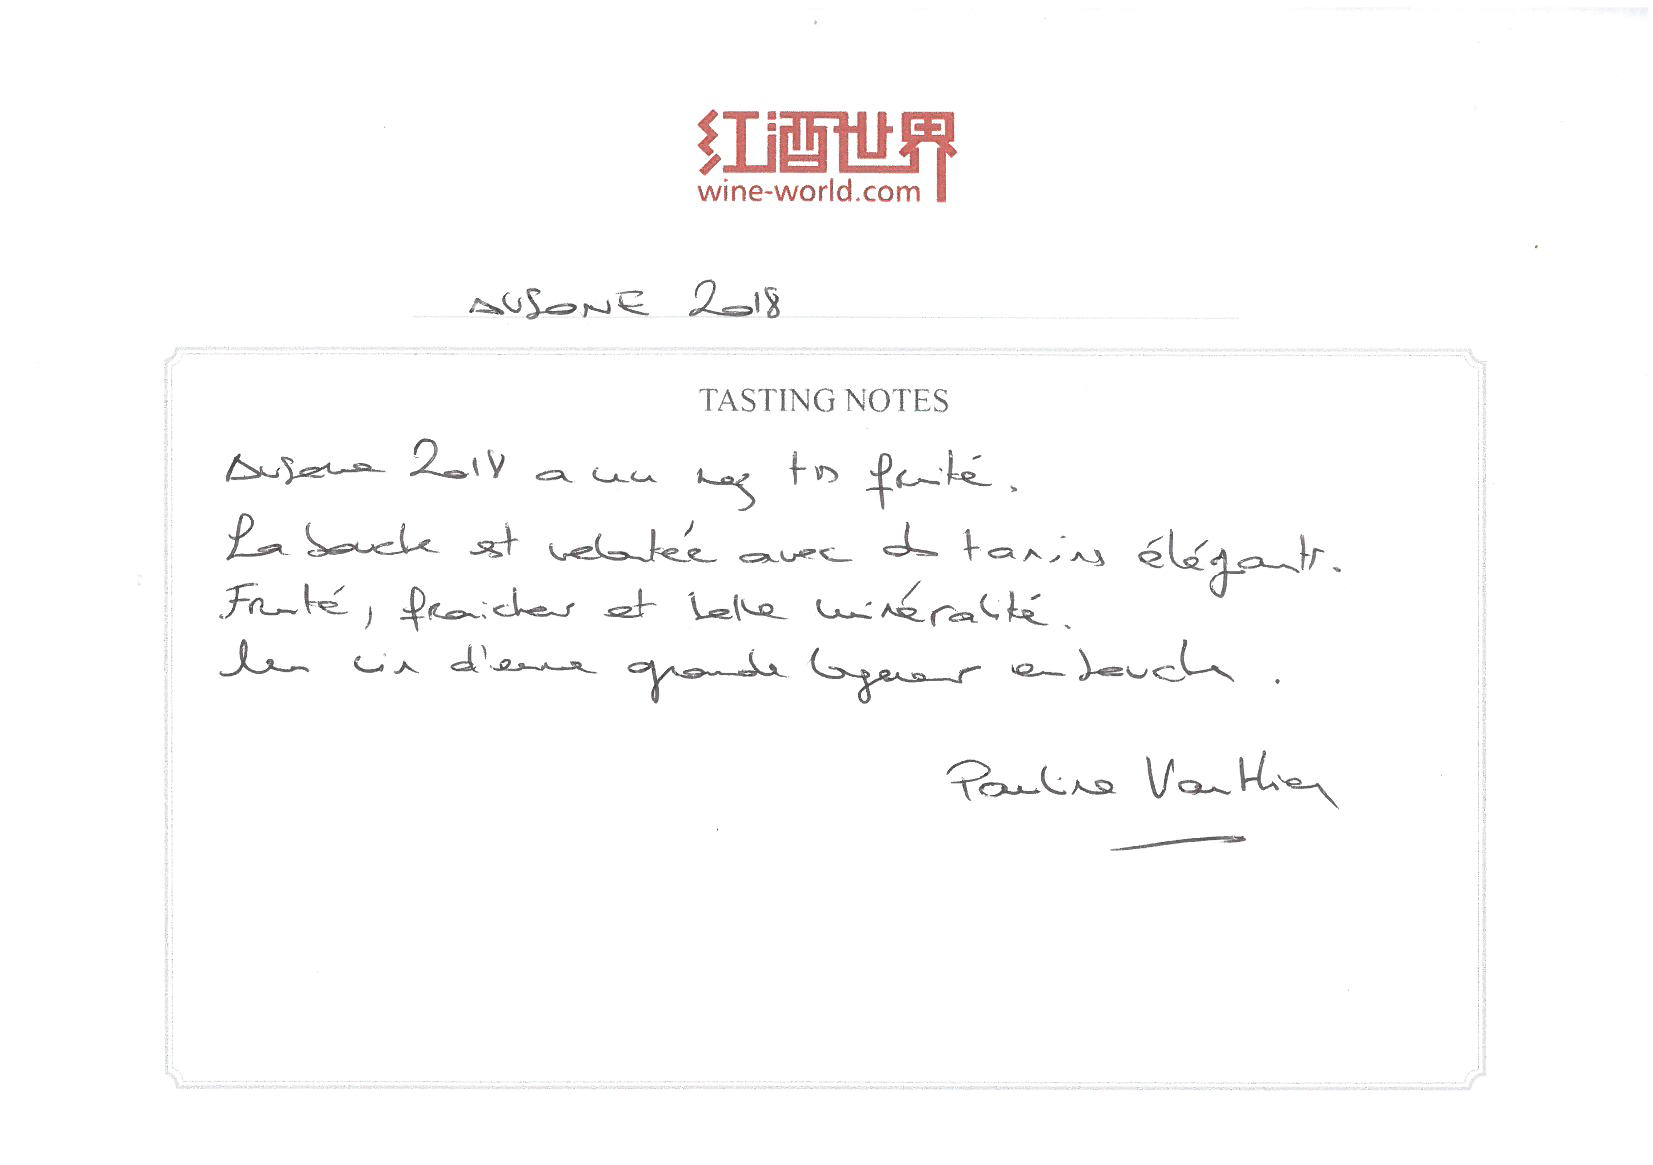 红酒世界
wine-world.com
AUSONE 2018
TASTING NOTES
Ausone 2018 a un nez très fruité.
La bouche est veloutée avec des tanins élégants.
Fruité, fraicheur et belle minéralité.
Un vin d'une grande longueur en bouche.
Pauline Vauthier